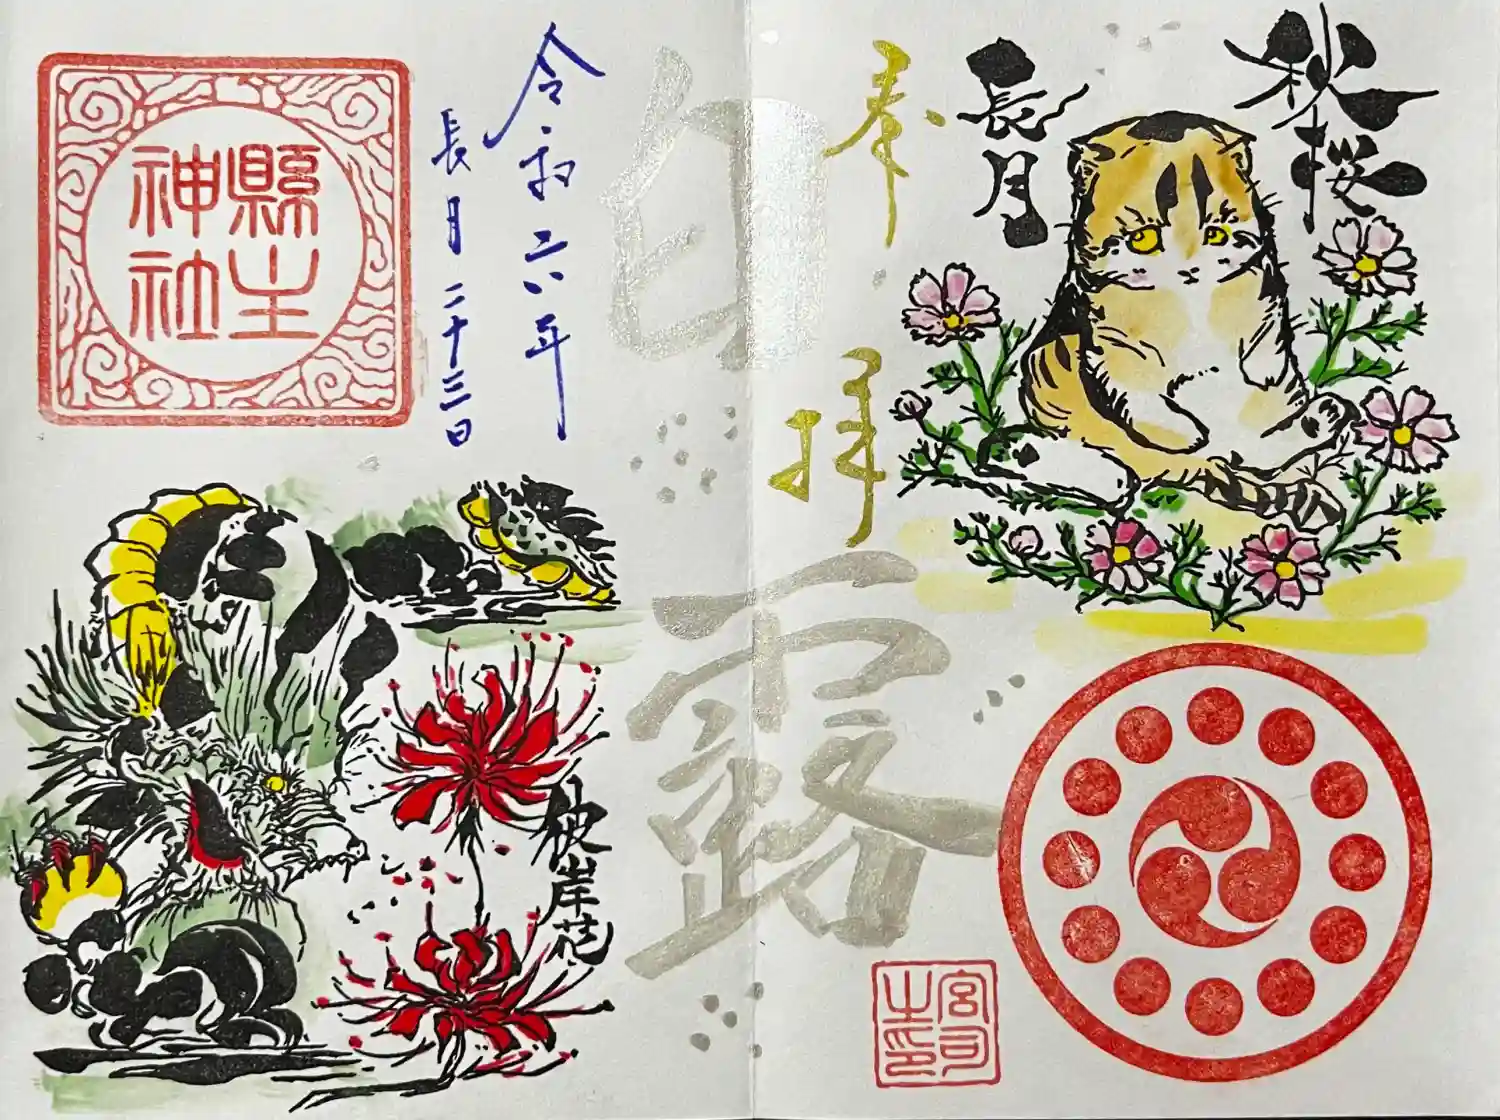 秋桜
長月
奉拝
白露
令和六年
長月二十三日
縣主
神社
彼岸花
宮司
之印